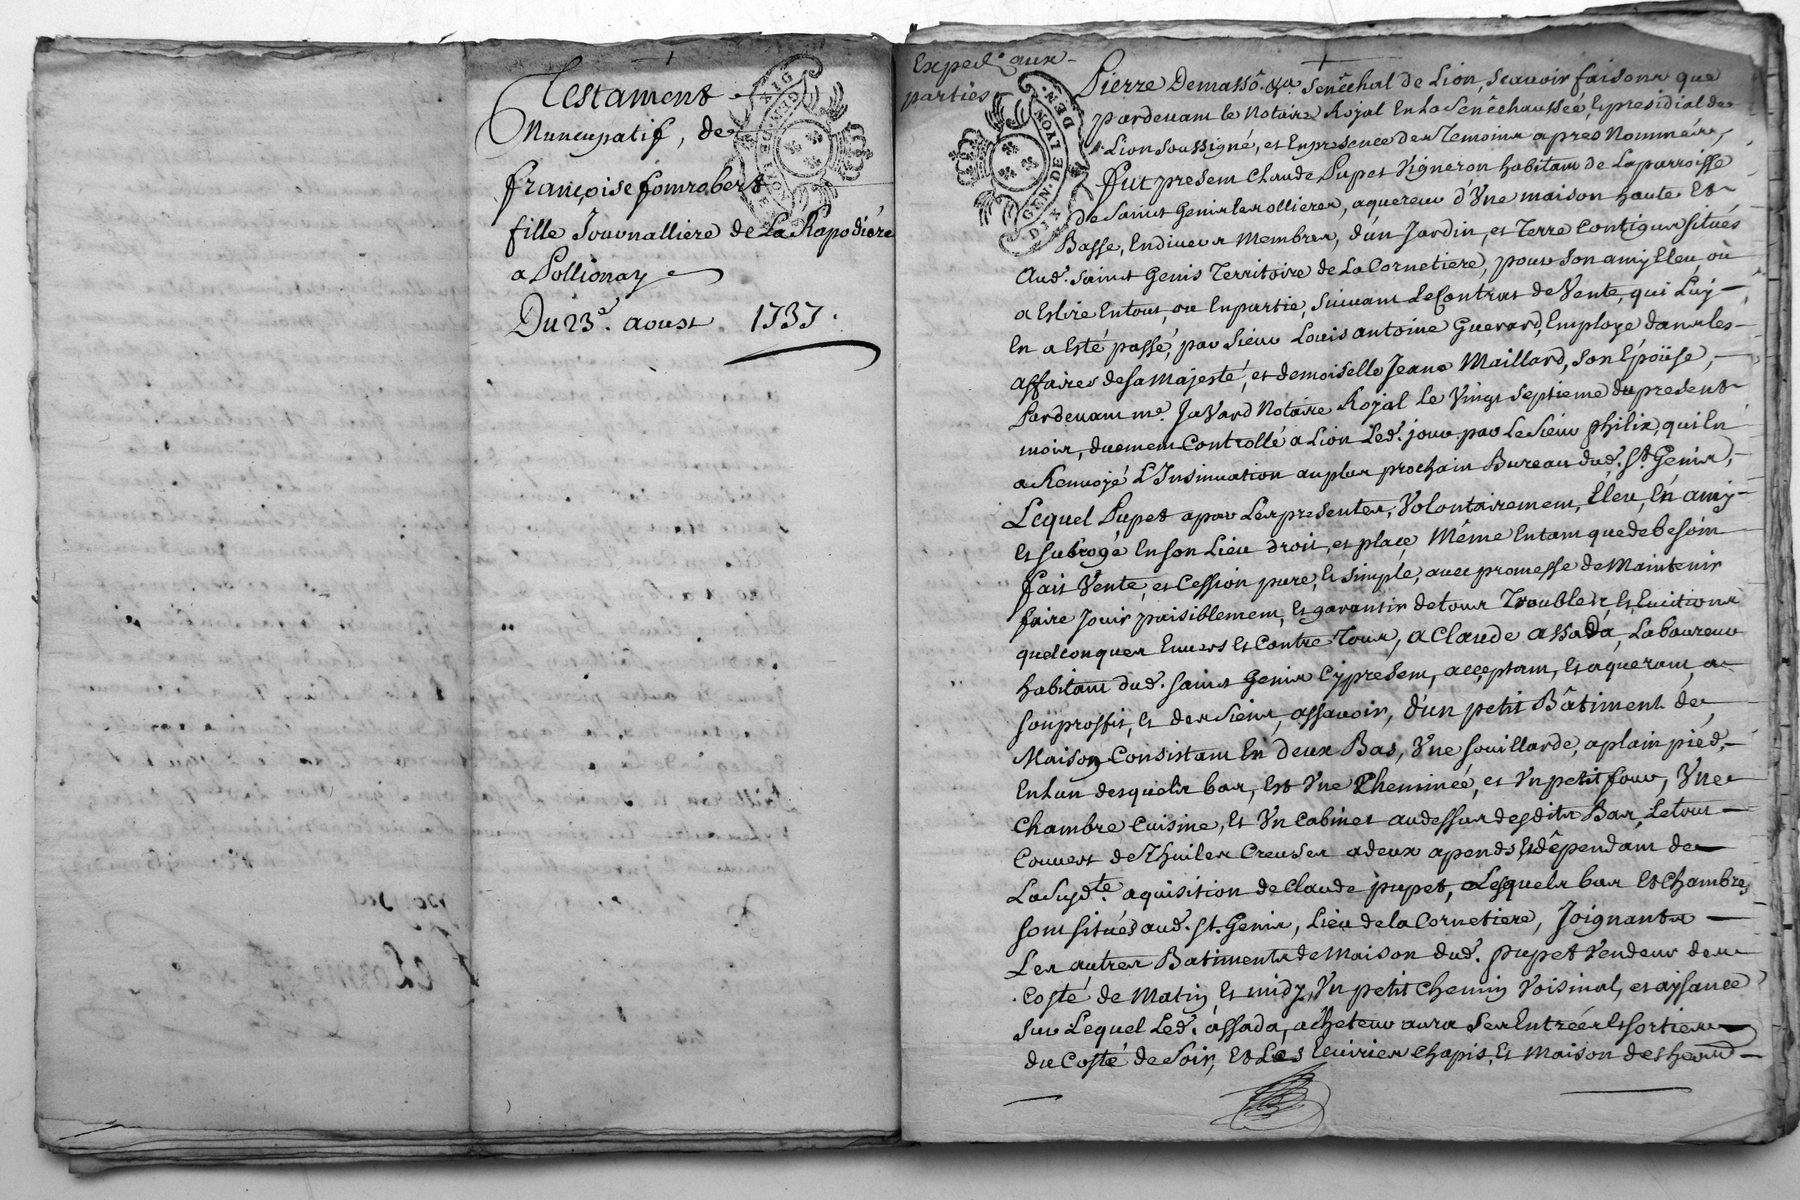 Testament
Nuncupatif, de
françoise fomrobert
fille Journalliere de La Rapodiére
a Pollionay
Du 23e. aoust 1737.
GEN. DE LYON
Exped.° aux
parties
Pierre Demassô. &a. Senêchal de Lion, scavoir faisons que
pardevant le Notaire Royal En La Senêchaussée, Et presidial de
Lion Soussigné, et En presence des Temoins apres Nommées,
fut present Claude Pupet Vigneron habitant de La parroisse
de Saint Genis les ollieres, aquereur d'Vne maison haute Et
Basse, En divers Membres, d'un Jardin, et Terre Contigus situés
Aud. Saint Genis Territoire de La Cornetiere, pour son amy Eleu, où
a Eslire En tout, ou En partie, suivant Le Contrat de Vente, qui Luy
En a Esté passé, par Sieur Louis antoine Guerard, Employe dans les
affaires de sa Majesté, et demoiselle Jeane Maillard, son Epouse,
Pardevant me. Javard Notaire Royal Le Vingt Septieme du present
mois, duement Controllé a Lion Led. jour par Le Sieur philix, qui En
a Renvoyé L'Insinuation au plus prochain Bureau dud. St. Genis,
Lequel Pupet apar Les presentes, Volontairement, Eleu, En amy
Et subrogé En son Lieu droit, et place Même En tant que de besoin
fait Vente, et Cession pure, Et simple, avec promesse de Maintenir
faire Jouir paisiblement, Et garantir de tous Troubles, Et Evictions
quelconques Envers Et Contre Tous, a Claude assada, Laboureur
habitant dud. Saint Genis Cy present, acceptant, Et aquerant, a
son proffit, Et des siens, assavoir, d'un petit Bâtiment de
Maison Consistant En deux Bas, Vne souillarde, a plain pied,
En L'un desquels bas, Est Vne Cheminée, et Vn petit four, Vne
Chambre Cuisine, Et Vn Cabinet au dessus desdits Bas, Le tout
Couvert de Thuiles Creuses a deux apends Et dêpendant de
La Susd.te aquisition de Claude pupet, Lesquels bas Et Chambres
sont situés aud. St. Genis, Lieu de la Cornetiere, Joignants
Les autres Batiments de Maison dud. pupet Vendeur de
Costé de Matin Et midy, Vn petit Chemin Voisinal, et aysance
sur Lequel Led. assada, acheteur aura ses Entrées Et sorties
du Costé de Soir, Et Les Ecuries Chapis, Et Maison des